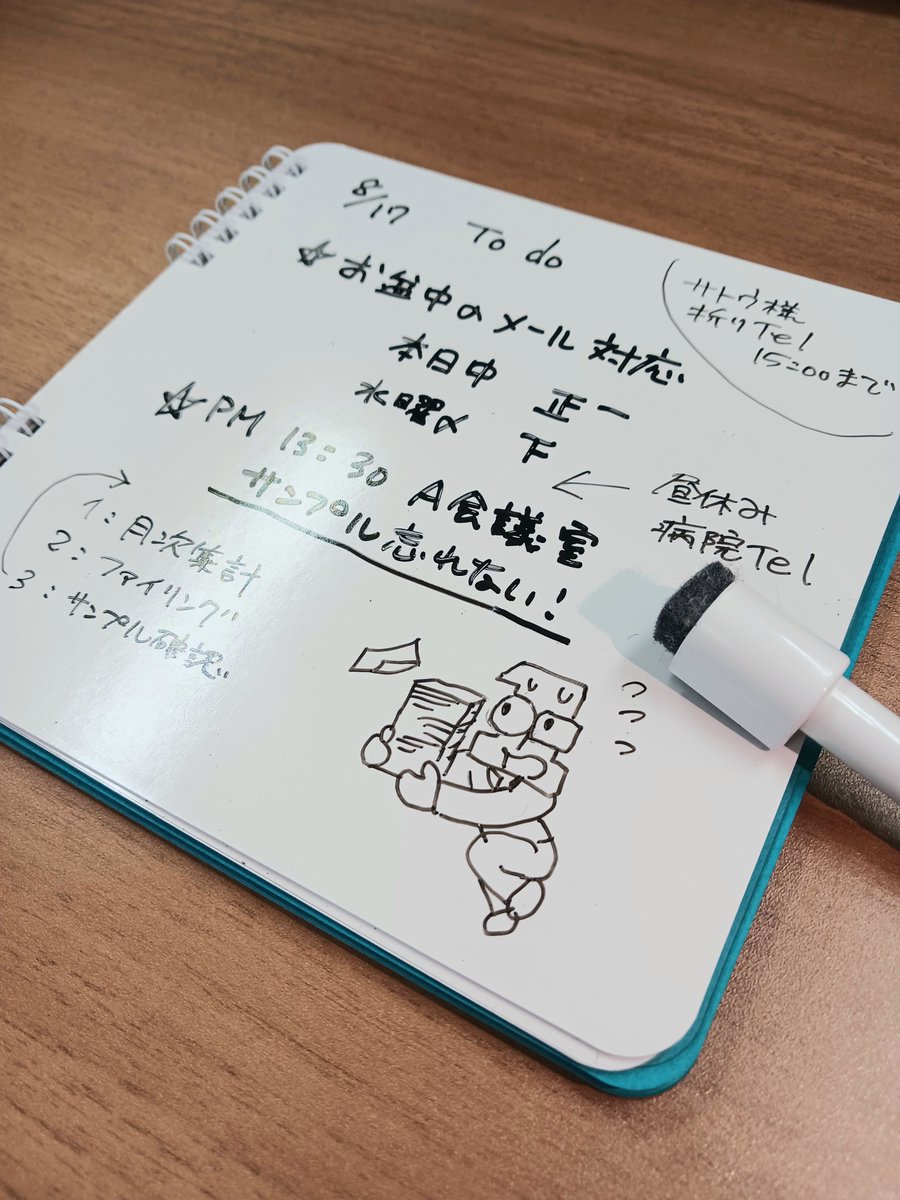 8/17 To do
☆お盆中のメール対応
本日中 正一
水曜〆 下
☆PM 13:30 A会議室
サンプル忘れない!
サトウ様
折りTel
15:00まで
← 昼休み
病院Tel
1:月次集計
2:ファイリング
3:サンプル確認